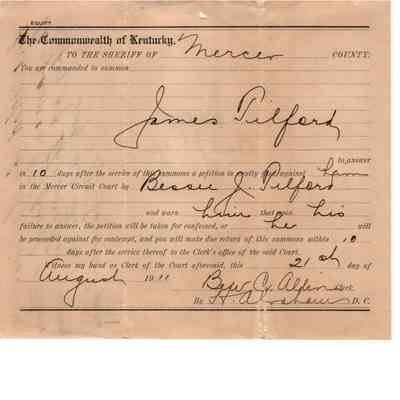 EQUITY
The Commonwealth of Kentucky,
TO THE SHERIFF OF Mercer COUNTY:
You are commanded to summon
James Tilford
to answer
in 10 days after the service of this summons a petition in equity filed against him
in the Mercer Circuit Court by Bessie J. Tilford
and warn him that upon his
failure to answer, the petition will be taken for confessed, or he will
be proceeded against for contempt, and you will make due return of this summons within 10
days after the service thereof to the Clerk's office of the said Court.
Witness my hand as Clerk of the Court aforesaid, this 21st day of
August 1911
Ben C. Allin Clerk
By H. Abrahams D. C.